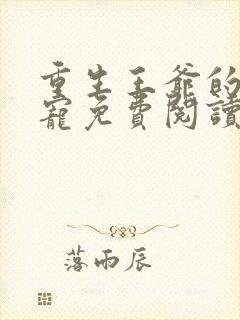 重生王爺的
寵免費閱讀
落雨辰